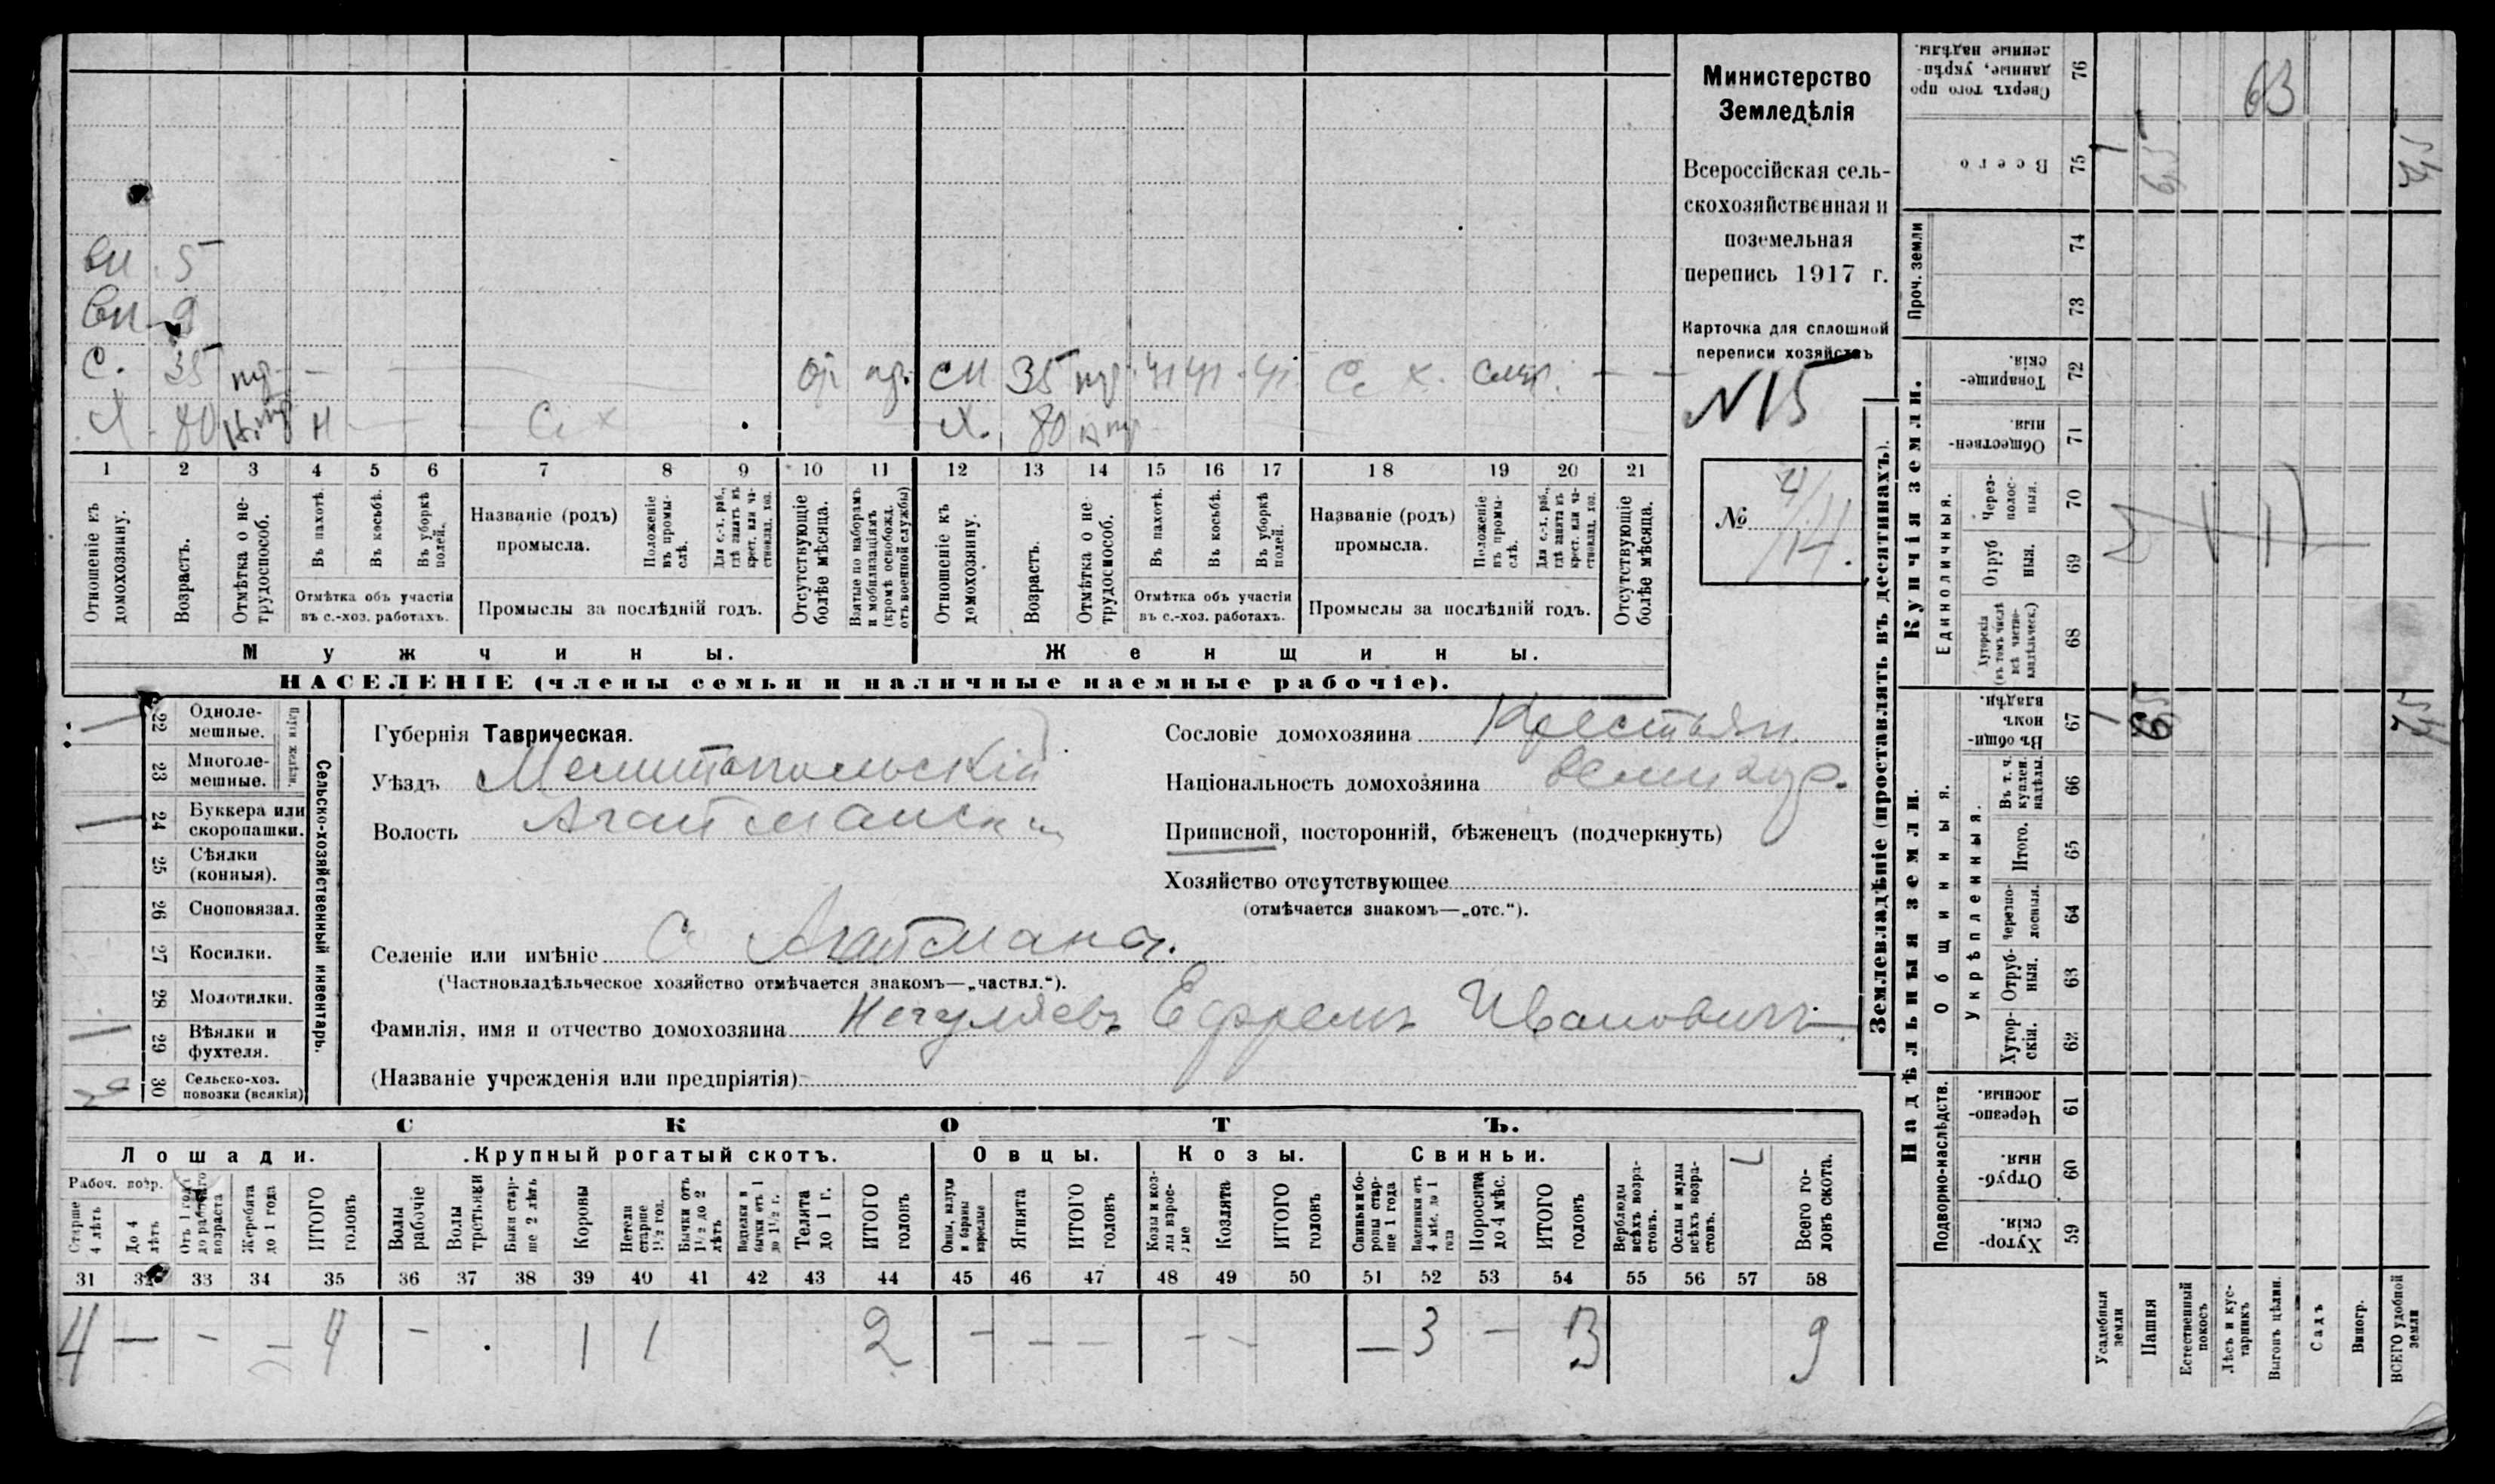 Министерство
Земледѣлія
Всероссійская сель-
скохозяйственная и
поземельная
перепись 1917 г.
Карточка для сплошной
переписи хозяйствъ
N 15
№ 4/14.
вн 5
вн 9
С. 35 — — ог сн 35 С. х. — —
Х. 80 Н С х Х. 80
1 2 3 4 5 6 7 8 9 10 11 12 13 14 15 16 17 18 19 20 21
Отношеніе къ домохозяину.
Возрастъ.
Отмѣтка о не-трудоспособ.
Въ пахотѣ.
Въ косьбѣ.
Въ уборкѣ полей.
Отмѣтка объ участіи
въ с.-хоз. работахъ.
Названіе (родъ)
промысла.
Положеніе въ промы-слѣ.
Для с.-х. раб., гдѣ занятъ въ крест. или ча-стновлад. хоз.
Промыслы за послѣдній годъ.
Отсутствующіе болѣе мѣсяца.
Взятые по наборамъ и мобилизаціямъ (кромѣ освобожд. отъ военной службы)
Отношеніе къ домохозяину.
Возрастъ.
Отмѣтка о не трудоспособ.
Въ пахотѣ.
Въ косьбѣ.
Въ уборкѣ полей.
Отмѣтка объ участіи
въ с.-хоз. работахъ.
Названіе (родъ)
промысла.
Положеніе въ промы-слѣ.
Для с.-х. раб., гдѣ занята въ крест. или ча-стновлад. хоз.
Промыслы за послѣдній годъ.
Отсутствующіе болѣе мѣсяца.
Мужчины. Женщины.
НАСЕЛЕНІЕ (члены семьи и наличные наемные рабочіе).
Сельско-хозяйственный инвентарь.
22 Одноле-мешные.
23 Многоле-мешные.
24 Буккера или скоропашки.
25 Сѣялки (конныя).
26 Сноповязал.
27 Косилки.
28 Молотилки.
29 Вѣялки и фухтеля.
30 Сельско-хоз. повозки (всякія)
Губернія Таврическая.
Уѣздъ Мелитопольскій
Волость Агайманск
Селеніе или имѣніе С Агайманы.
(Частновладѣльческое хозяйство отмѣчается знакомъ—„частвл.“).
Фамилія, имя и отчество домохозяина Негуляевъ Ефремъ Ивановичъ
(Названіе учрежденія или предпріятія)
Сословіе домохозяина Крестьян.
Національность домохозяина великор.
Приписной, посторонній, бѣженецъ (подчеркнуть)
Хозяйство отсутствующее
(отмѣчается знакомъ—„отс.“).
СКОТЪ.
Лошади. Крупный рогатый скотъ. Овцы. Козы. Свиньи.
Рабоч. возр.
Старше 4 лѣтъ
До 4 лѣтъ
Отъ 1 года до рабочаго возраста
Жеребята до 1 года
ИТОГО головъ
Волы рабочіе
Волы третьяки
Быки стар-ше 2 лѣтъ
Коровы
Нетели старше 1½ год.
Бычки отъ 1½ до 2 лѣтъ
Подтелки и бычки отъ 1 до 1½ г.
Телята до 1 г.
ИТОГО головъ
Овцы, валухи и бараны взрослые
Ягнята
ИТОГО головъ
Козы и коз-лы взрос-лые
Козлята
ИТОГО головъ
Свиньи и бо-ровы стар-ше 1 года
Подсвинки отъ 4 мѣс. до 1 года
Поросята до 4 мѣс.
ИТОГО головъ
Верблюды всѣхъ возра-стовъ.
Ослы и мулы всѣхъ возра-стовъ.
Всего го-ловъ скота.
31 32 33 34 35 36 37 38 39 40 41 42 43 44 45 46 47 48 49 50 51 52 53 54 55 56 57 58
4 — — — 4 — 1 1 2 — — — — — — 3 — 3 9
Землевладѣніе (проставлять въ десятинахъ).
Надѣльныя земли. Купчія земли.
Подворно-наслѣдств.
Общинныя.
Укрѣпленныя.
Единоличныя.
Проч. земли
59 Хутор-скія.
60 Отруб-ныя.
61 Черезпо-лосныя.
62 Хутор-скія.
63 Отруб-ныя.
64 Черезпо-лосныя.
65 Итого.
66 Въ т. ч. куплен. надѣлы.
67 Въ общин-номъ владѣн.
68 Хуторскія (въ томъ числѣ всѣ частно-владѣльческ.)
69 Отруб ныя.
70 Через-полос-ныя.
71 Обществен-ныя.
72 Товарище-скія.
73
74
75 Всего
76 Сверхъ того про данные, укрѣп-ленные надѣлы.
Усадебныя земли
Пашня
Естественный покосъ
Лѣсъ и кус-тарникъ
Выгонъ цѣлин.
Садъ
Виногр.
ВСЕГО удобной земли
63